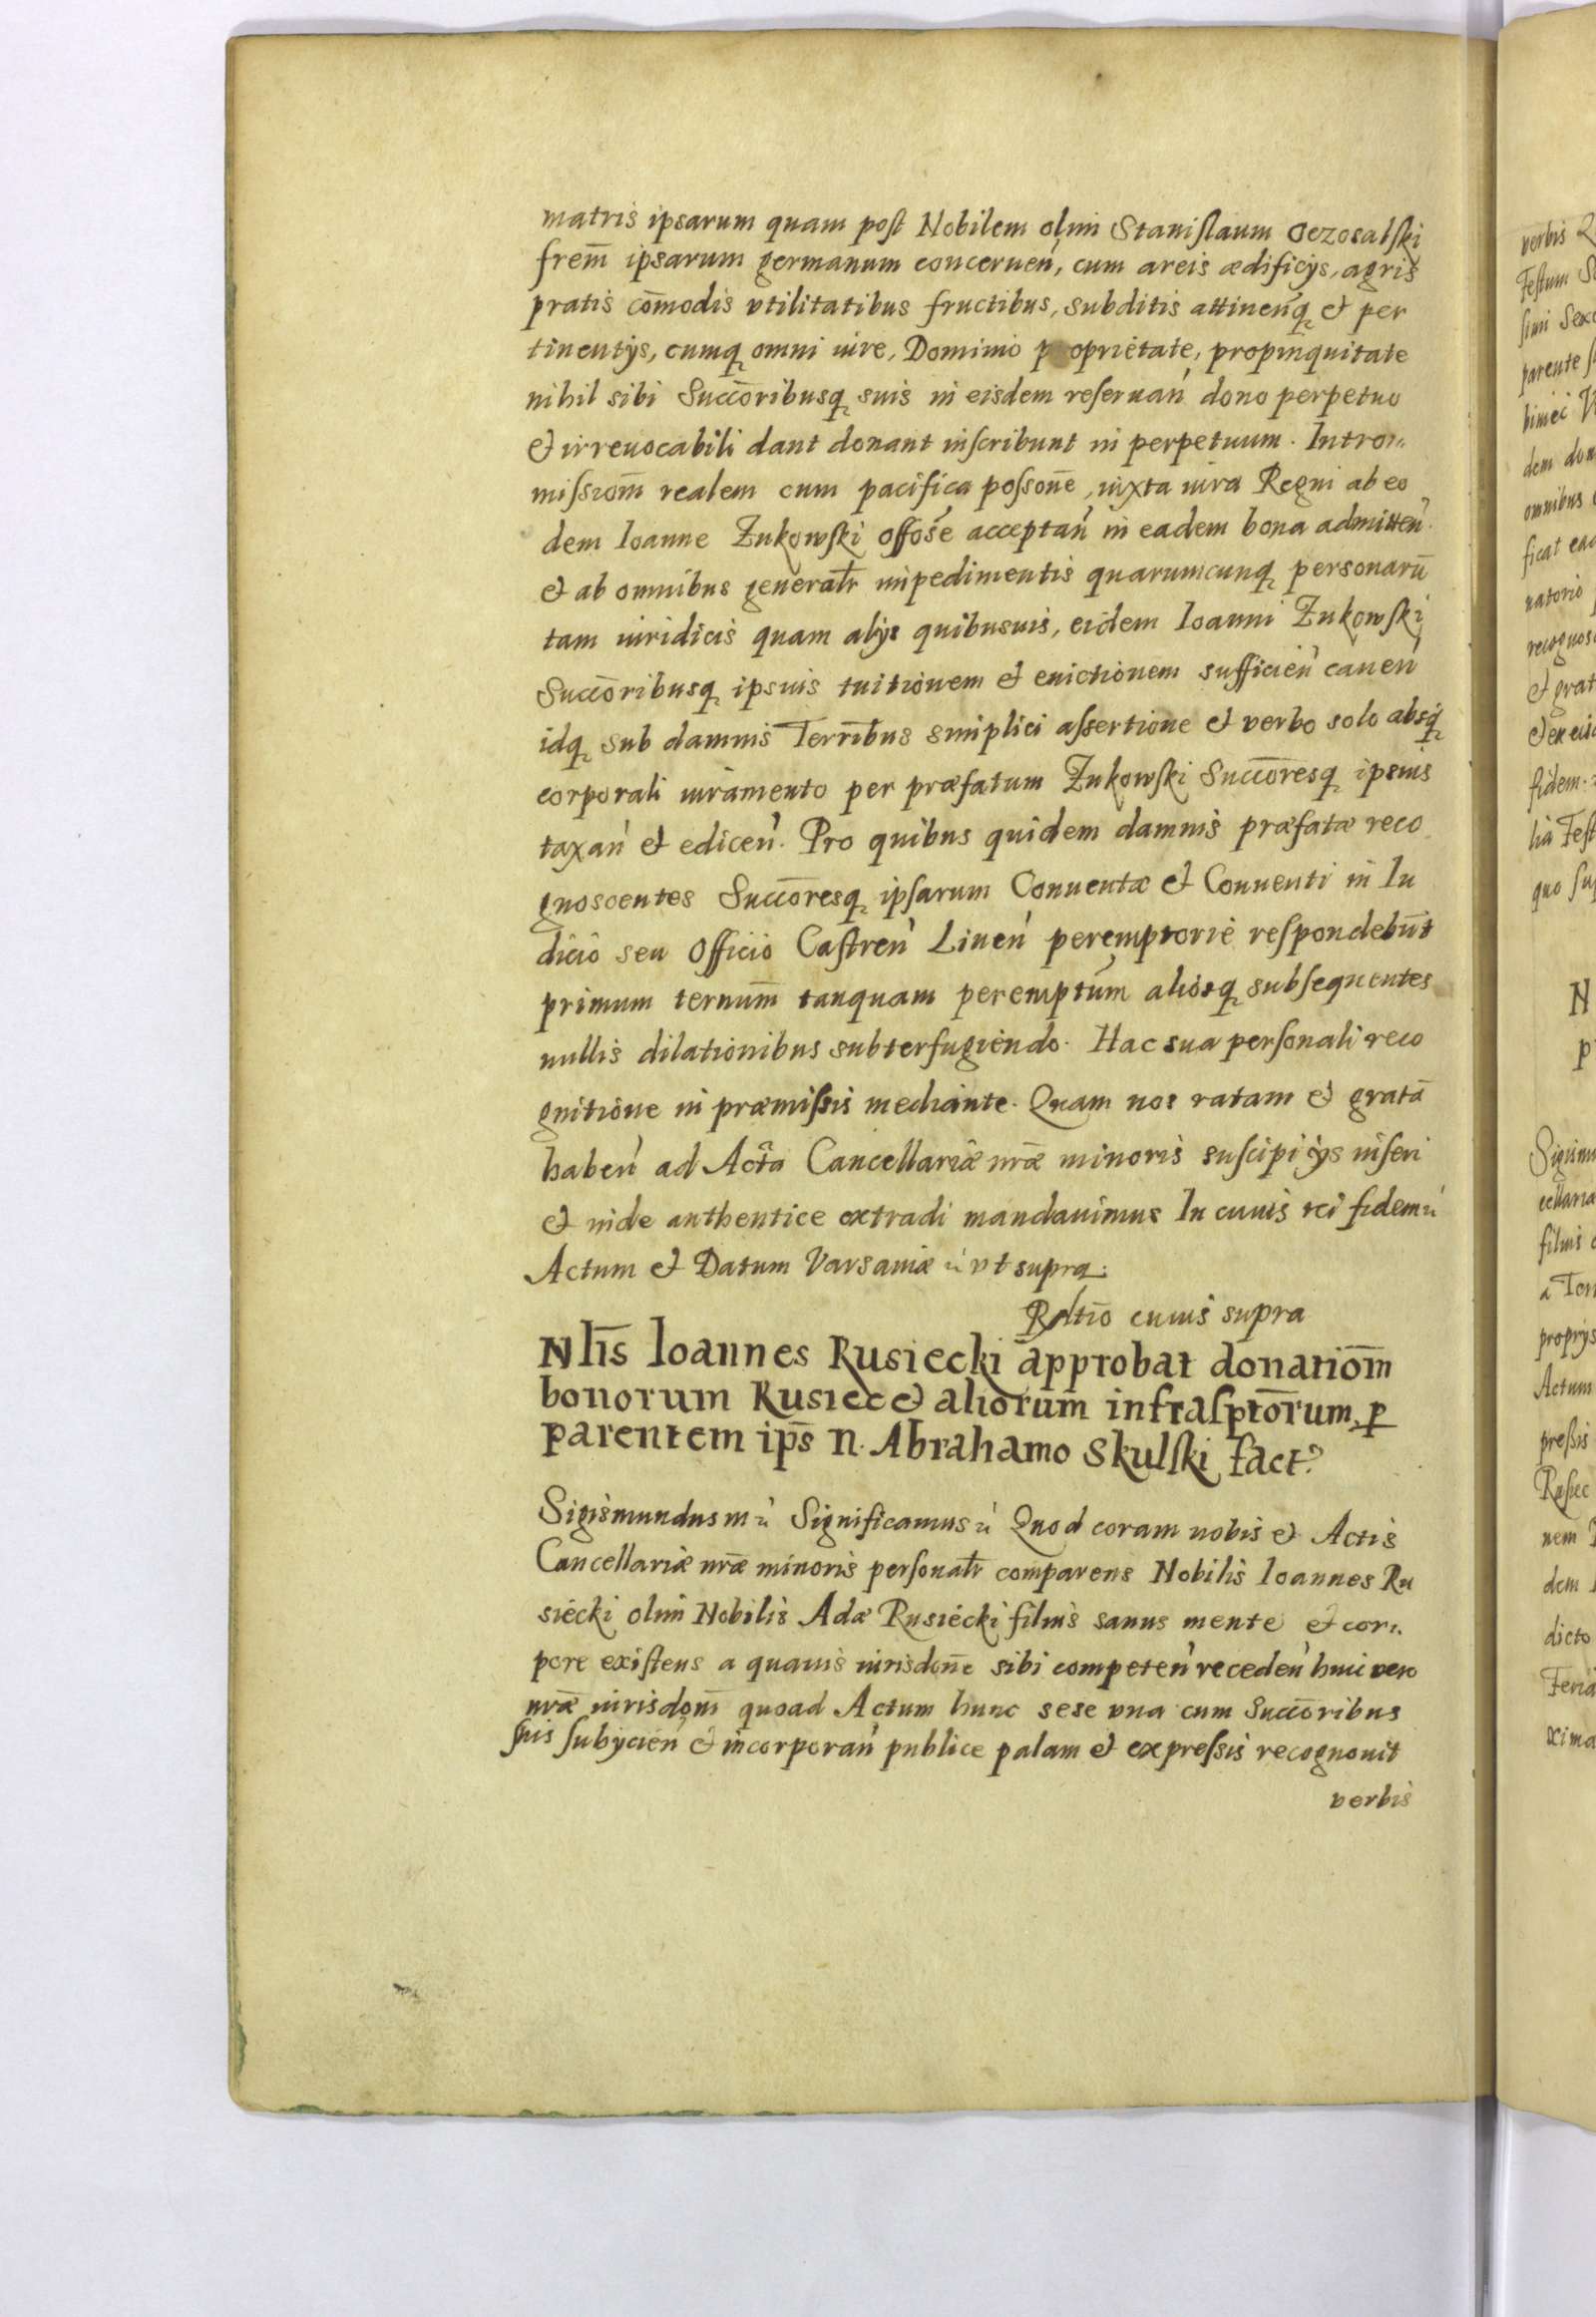 matris ipsarum quam poſt Nobilem olim Staniſlaum Oezosalſki
frem̄ ipsarum germanum concernen̄, cum areis ædificijs, agris
pratis com̄odis vtilitatibus fructibus, subditis attinen̄q et per
tinentijs, cumq omni iure, Dominio p oprietate, propinquitate
nihil sibi Succ̄oribusq suis in eisdem reſeruan̄ dono perpetuo
et irreuocabili dant donant inſcribunt in perpetuum. Intro
miſsiom̄ realem cum pacifica poſson̄e, iuxta iura Regni ab eo
dem Ioanne Zukowſki offos̄e acceptan̄ in eadem bona admitten̄
et ab omnibus generalr̄ impedimentis quarumcunq personarū
tam iuridicis quam alijs quibusuis, eidem Ioanni Zukowſki
Succ̄oribusq ipsius tuitionem et euictionem sufficien̄ cauen̄
idq sub damnis Terrīb̄us simplici aſsertione et verbo solo absq
corporali iuramento per præfatum Zukowſki Succ̄oresq ipsius
taxan̄ et edicen̄. Pro quibus quidem damnis præfatæ reco
gnoscentes Succ̄oresq ipſarum Conuentæ et Conuenti in Iu
dicio seu Officio Caſtren̄ Liuen̄ peremptorie reſpondebūt
primum ternum̄ tanquam peremptūm aliosq subſequentes
nullis dilationibus subterfugiendo. Hac sua perſonali reco
gnitione in præmiſsis mediante. Quam nos ratam et gratā
haben̄ ad Acta Cancellariæ nr̄æ minoris suſcipi ijs inſeri
et inde authentice extradi mandauimus In cuius rei fidem ū
Actum et Datum Varsauiæ ū vt supra.
Rltīo cuius supra
Nlīs Ioannes Rusiecki approbat donatiom̄
bonorum Rusiec et aliorum infraſptōrum, ꝑ
parentem ip̄s N. Abrahamo Skulſki fact.
Sigismundus m ū Significamus ū Quod coram nobis et Actis
Cancellariæ nr̄æ minoris perſonalr̄ comparens Nobilis Ioannes Ru
siecki olim Nobilis Adæ Rusiecki filius sanus mente et cor
pore exiſtens a quauis iurisdon̄e sibi competen̄ receden̄ huic vero
nr̄æ iurisdom̄ quoad Actum hunc sese vna cum Succ̄oribus
ſuis ſubijcien̄ et incorporan̄ publice palam et expreſsis recognouit
verbis